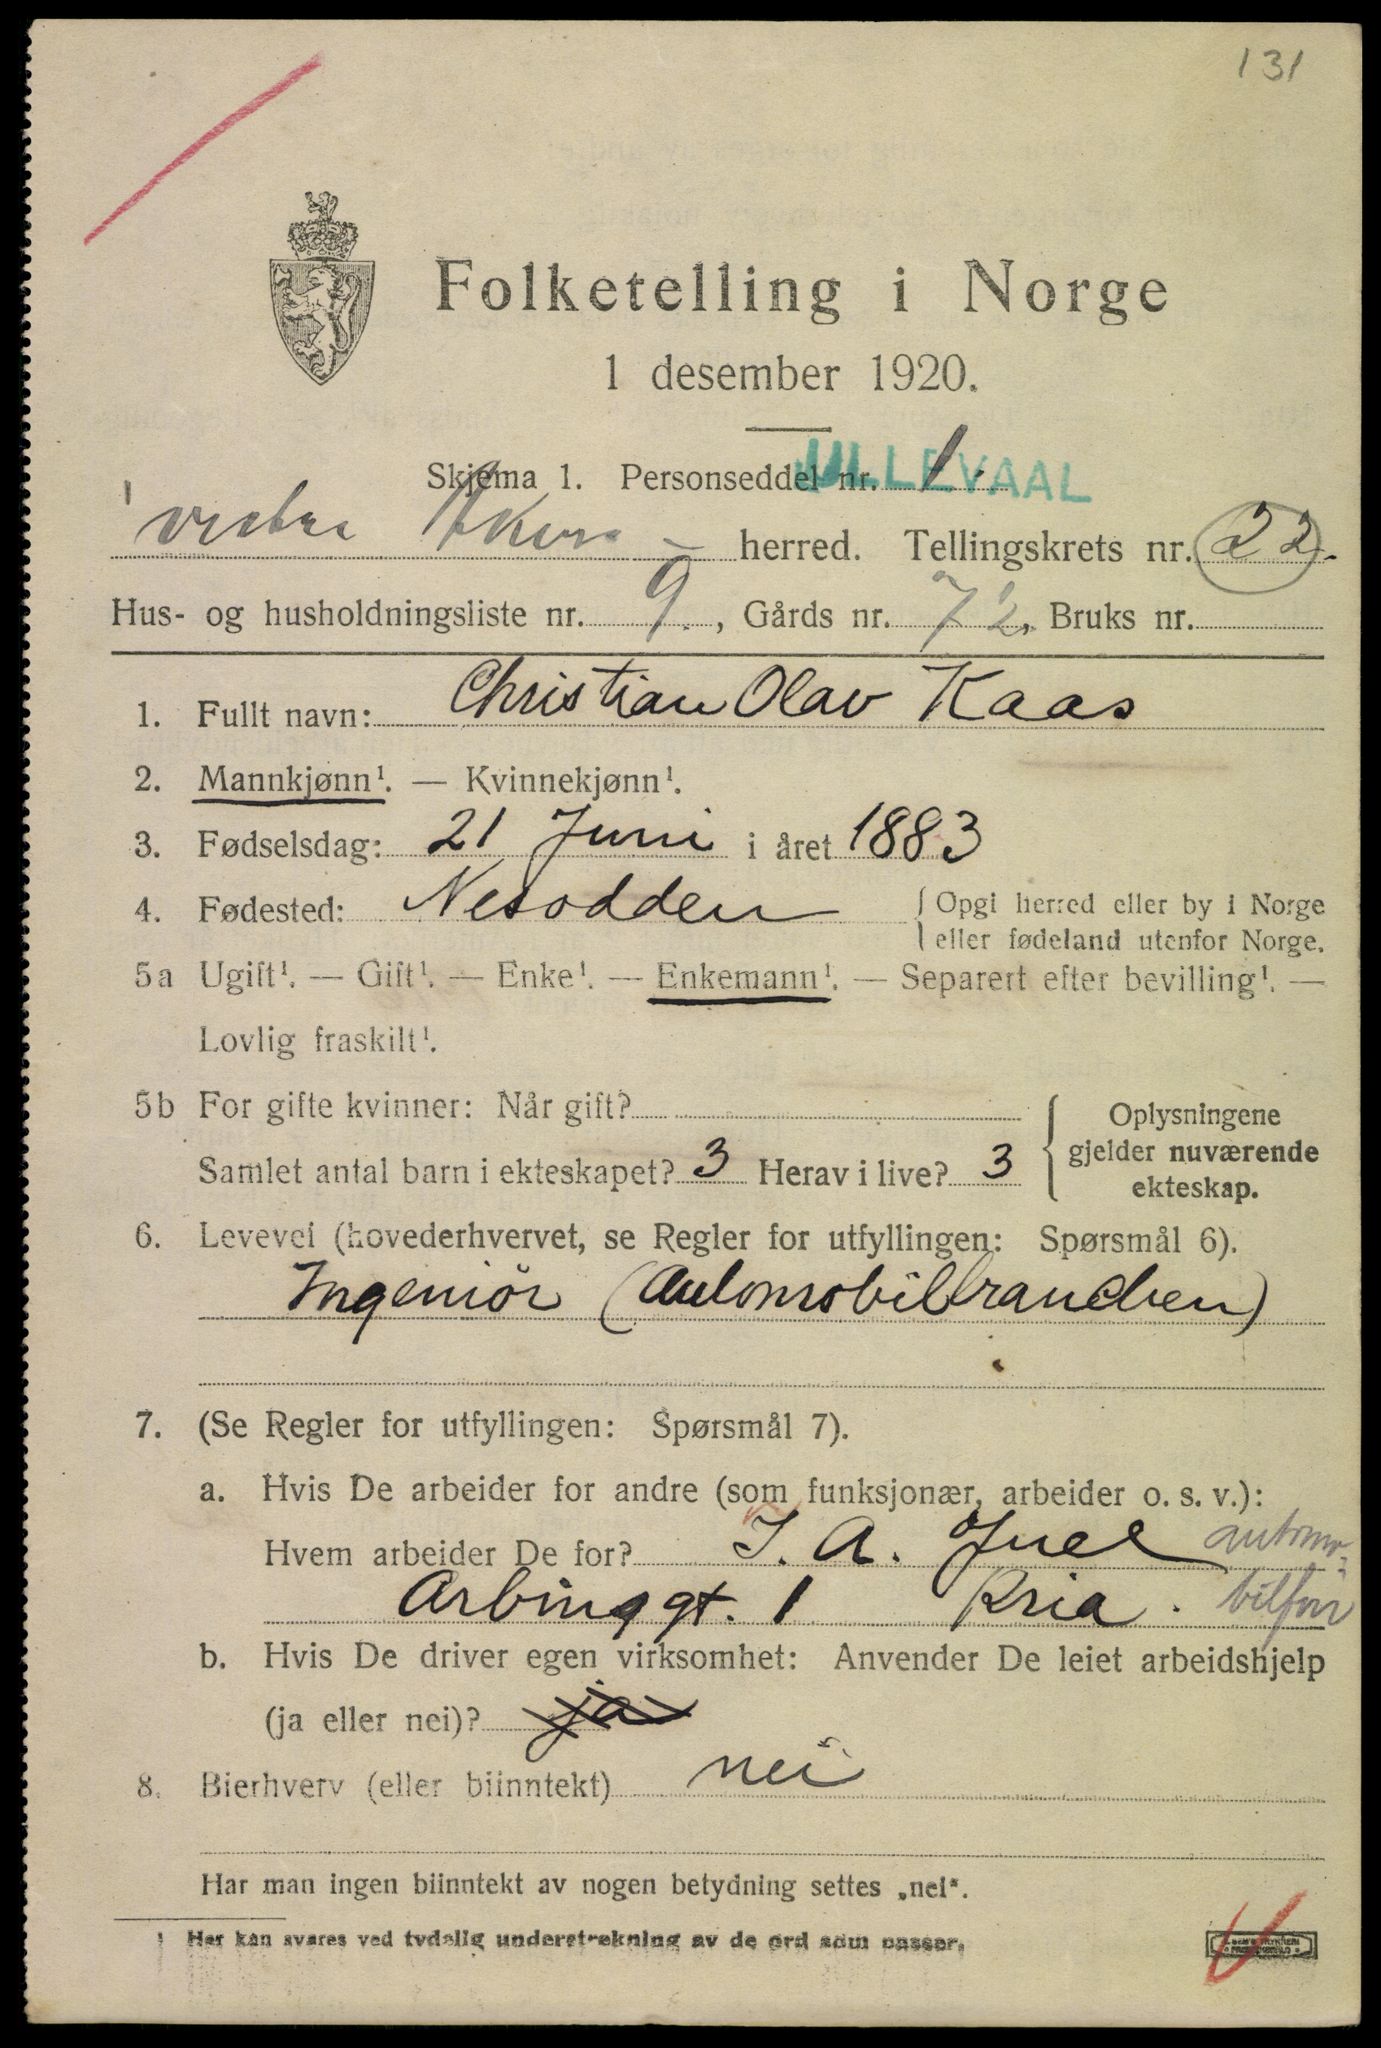 131
Folketelling i Norge
1 desember 1920.
Skjema 1. Personseddel nr. 1.
ULLEVAAL
vestre Akers herred. Tellingskrets nr. 22.
Hus- og husholdningsliste nr. 9., Gårds nr. 72, Bruks nr.
1. Fullt navn: Christian Olav Kaas
2. Mannkjønn¹. — Kvinnekjønn¹.
3. Fødselsdag: 21 Juni i året 1883
4. Fødested: Nesodden { Opgi herred eller by i Norge
eller fødeland utenfor Norge.
5a Ugift¹. — Gift¹. — Enke¹. — Enkemann¹. — Separert efter bevilling¹. —
Lovlig fraskilt¹.
5b For gifte kvinner: Når gift?
Samlet antal barn i ekteskapet? 3 Herav i live? 3
Oplysningene
gjelder nuværende
ekteskap.
6. Levevei (hovederhvervet, se Regler for utfyllingen: Spørsmål 6).
Ingeniör (Automobilbranchen)
7. (Se Regler for utfyllingen: Spørsmål 7).
a. Hvis De arbeider for andre (som funksjonær, arbeider o. s. v.):
Hvem arbeider De for? J. A. Juel automo-
Arbinsgt. 1 Kria. bilforr
b. Hvis De driver egen virksomhet: Anvender De leiet arbeidshjelp
(ja eller nei)? ja
8. Bierhverv (eller biinntekt) nei
Har man ingen biinntekt av nogen betydning settes „nei“.
¹ Her kan svares ved tydelig understrekning av de ord som passer.